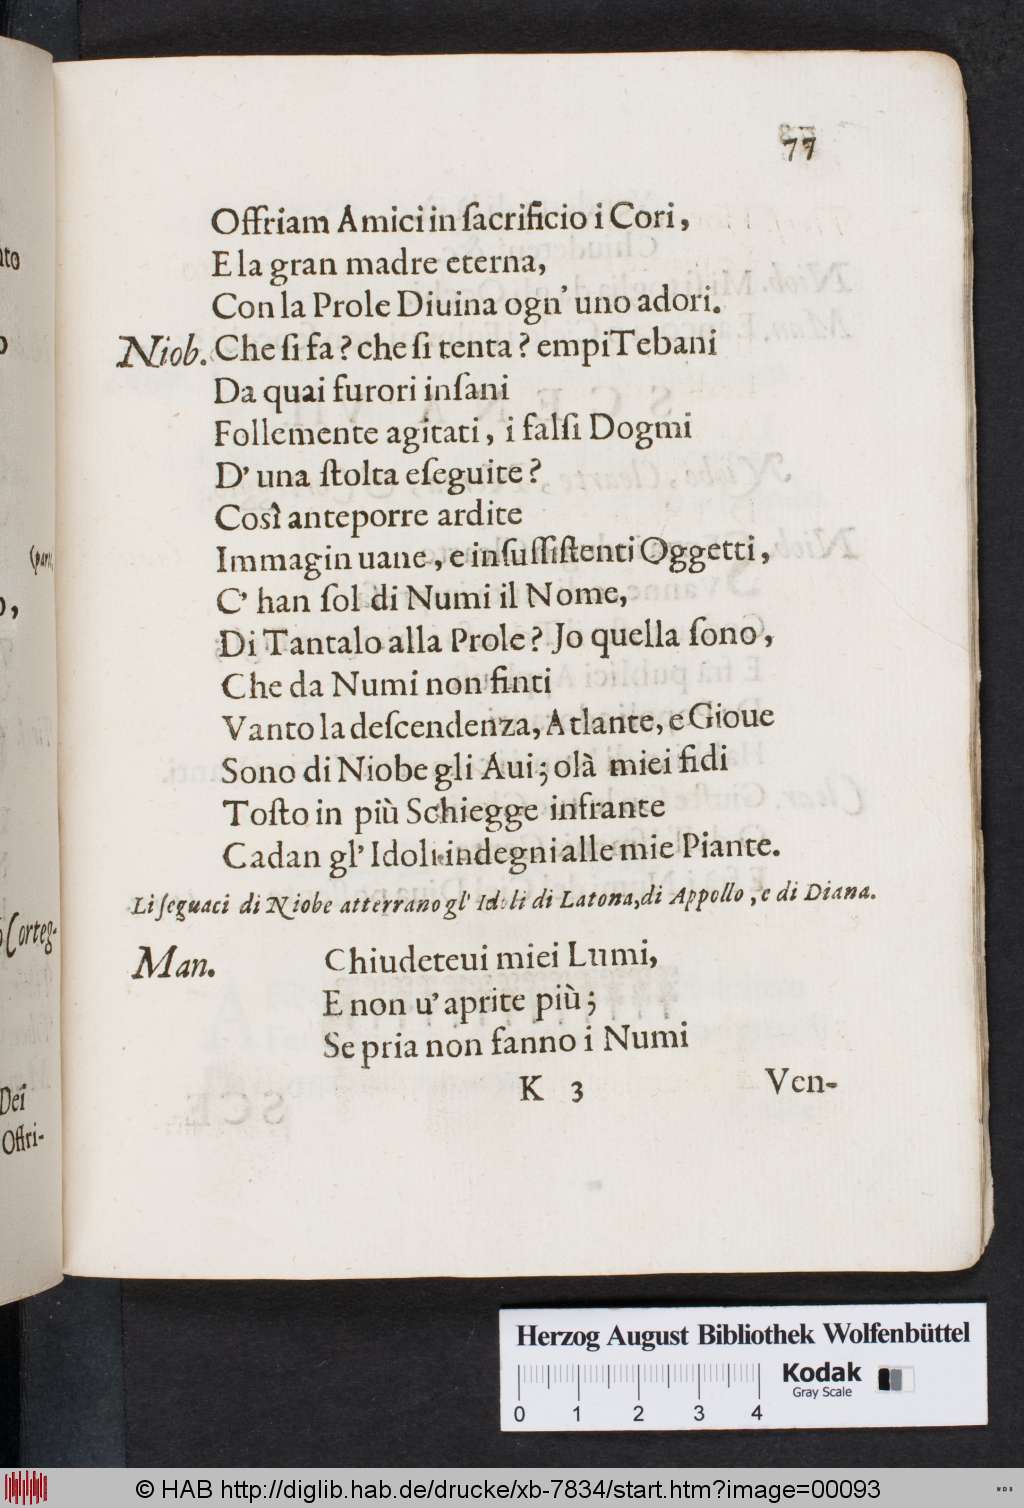 77
Offriam Amici in ſacrificio i Cori,
E la gran madre eterna,
Con la Prole Diuina ogn' uno adori.
Niob. Che ſi fa? che ſi tenta? empi Tebani
Da quai furori inſani
Follemente agitati, i falſi Dogmi
D' una ſtolta eſeguite?
Così anteporre ardite
Immagin uane, e inſuſſiſtenti Oggetti,
C' han ſol di Numi il Nome,
Di Tantalo alla Prole? Jo quella ſono,
Che da Numi non finti
Vanto la deſcendenza, Atlante, e Gioue
Sono di Niobe gli Aui; olà miei fidi
Toſto in più Schiegge infrante
Cadan gl' Idoli indegni alle mie Piante.
Li ſeguaci di Niobe atterrano gl' Idoli di Latona, di Appollo, e di Diana.
Man. Chiudeteui miei Lumi,
E non u' aprite più;
Se pria non fanno i Numi
K 3 Ven-
Corteg-
Dei
Offri-
Herzog August Bibliothek Wolfenbüttel
Kodak
Gray Scale
0 1 2 3 4
© HAB http://diglib.hab.de/drucke/xb-7834/start.htm?image=00093